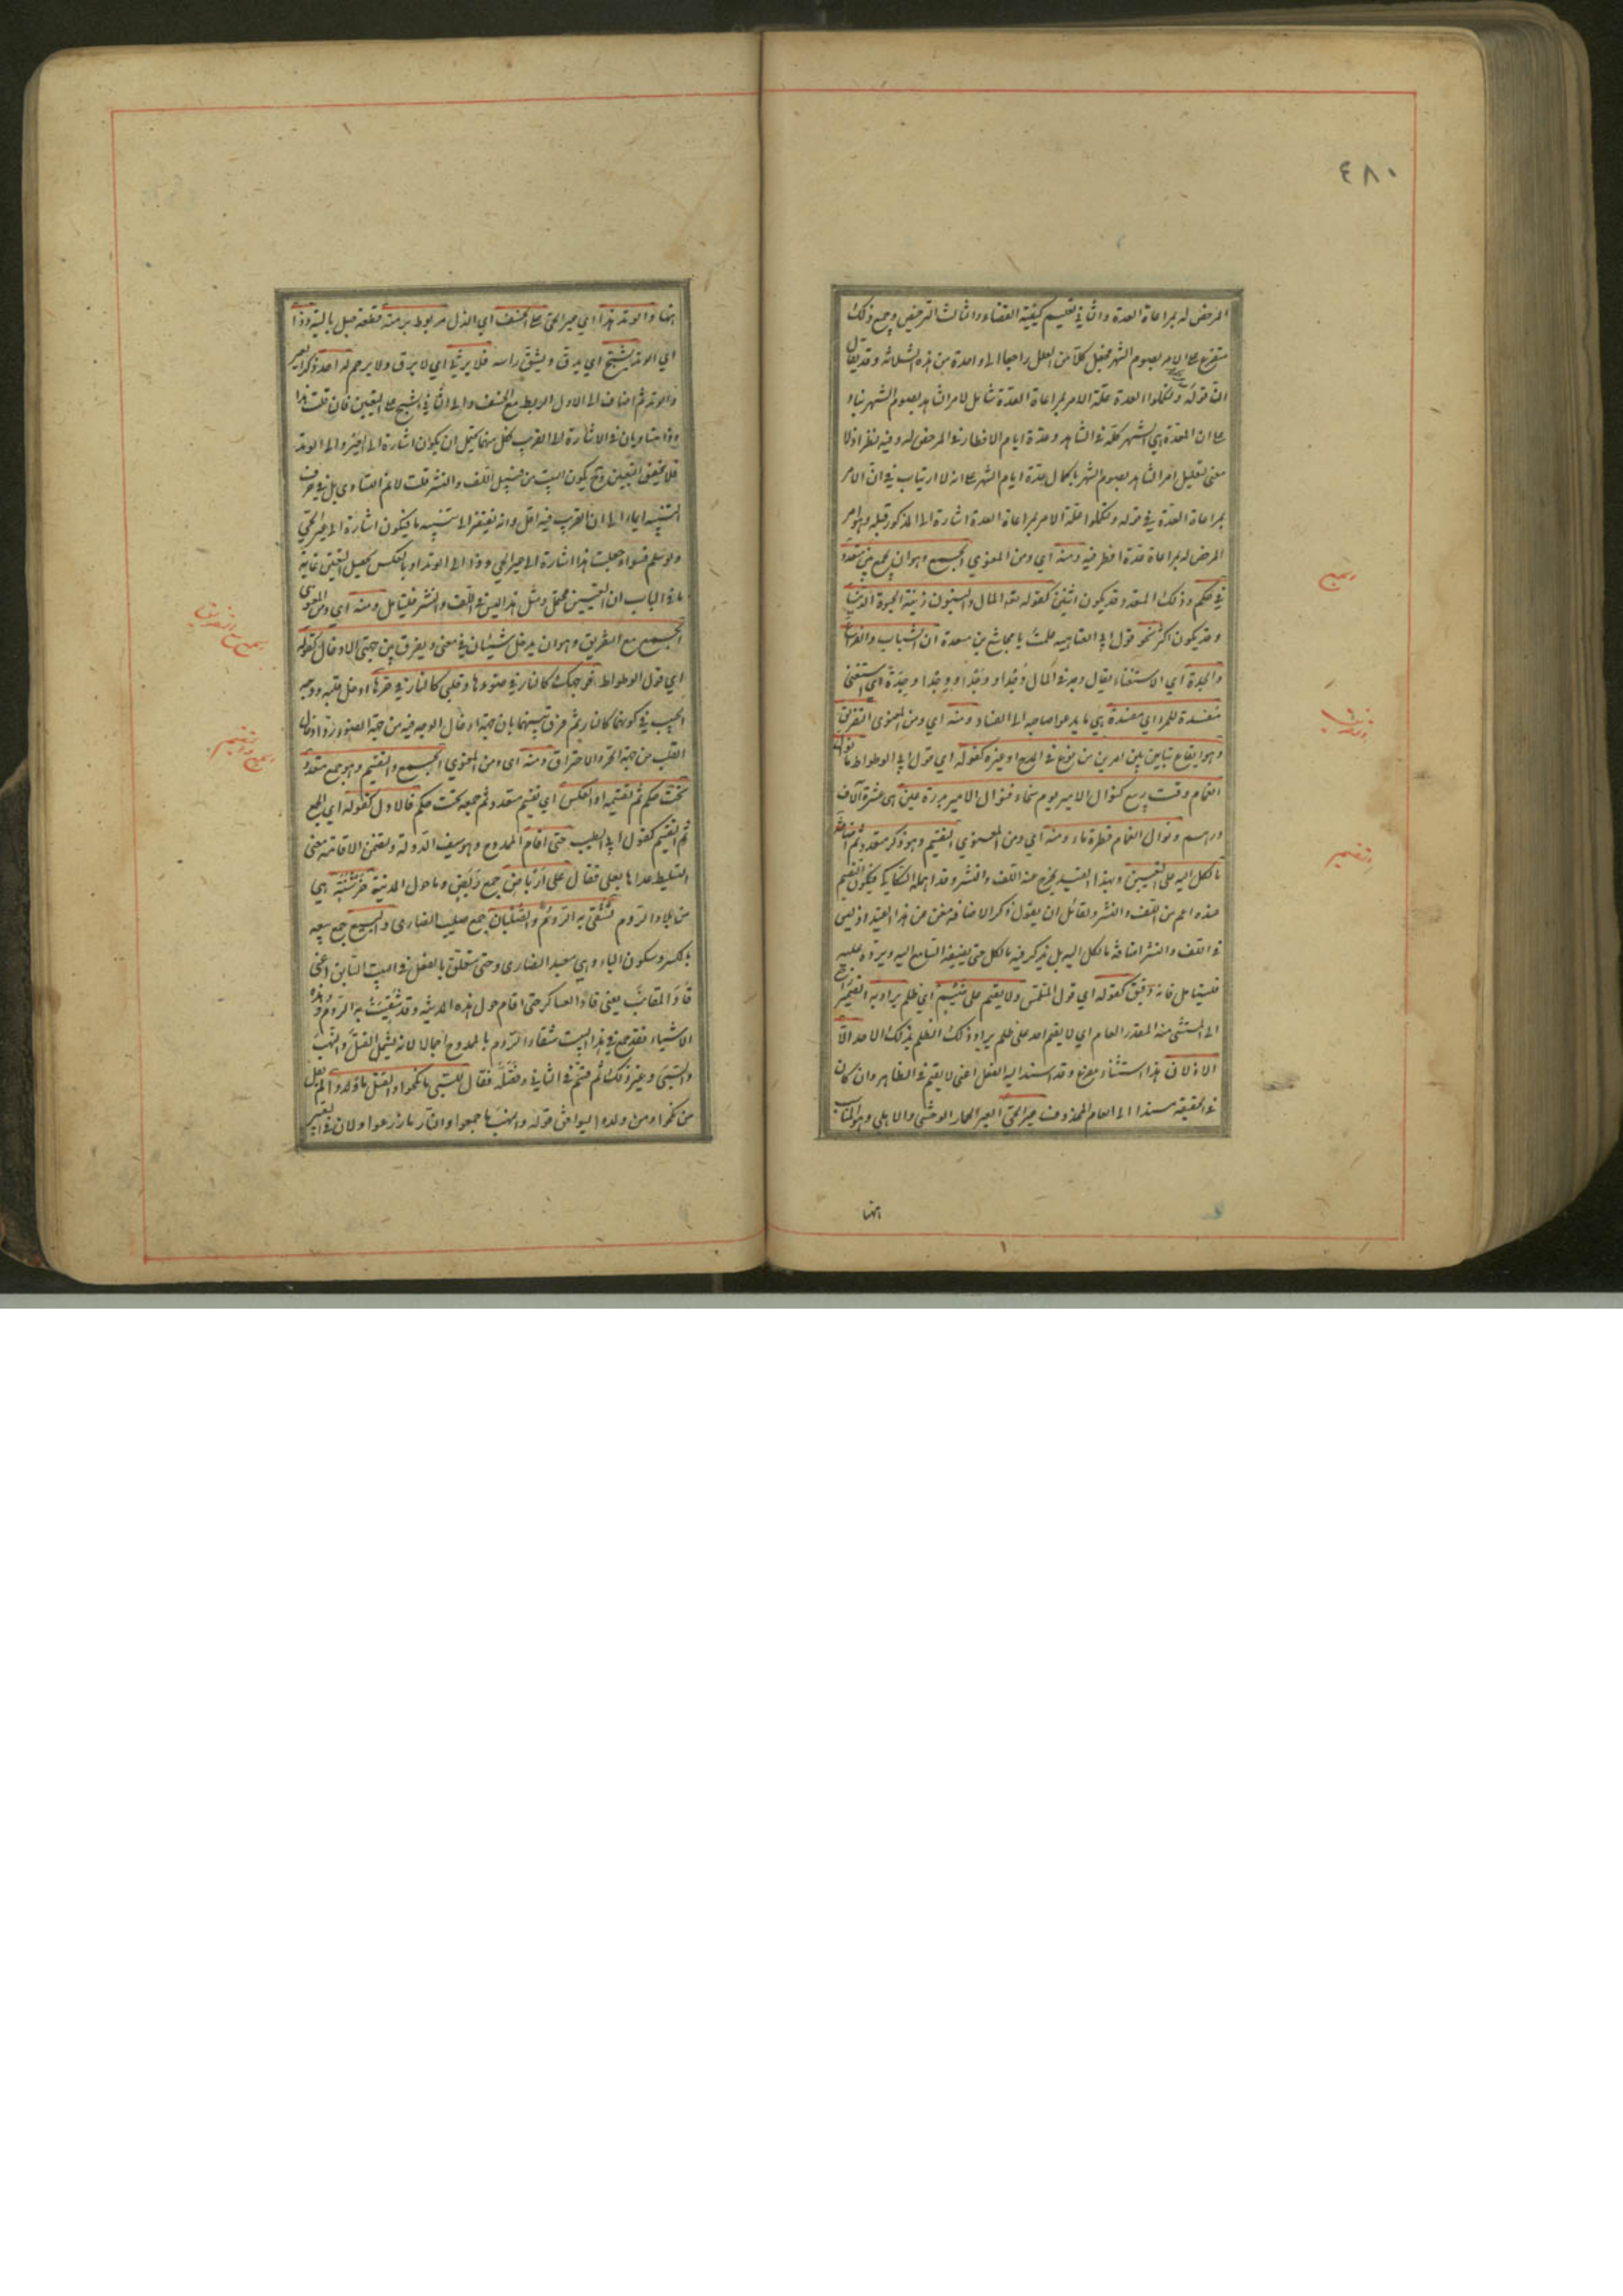 ٤٨٠
المرخص له بمراعاة العدة والثاني تعليم كيفية القضاء والثالث الترخيص وجميع ذلك
متفرع على الامر بصوم الشهر فجعل كلا من العلل راجعا الى واحدة من هذه الثلاثة وقد يقال
ان قوله ولتكملوا العدة علة الامر بمراعاة العدة شامل لامر الشاهد بصوم الشهر بناء
على ان العدة هي الشهر كله في الشاهد وعدة ايام الافطار في المرخص له وفيه نظر اذ لا
معنى لتعليل امر الشاهد بصوم الشهر باكمال عدة ايام الشهر على انه لا ارتياب في ان الامر
بمراعاة العدة في قوله ولتكملوا علة الامر بمراعاة العدة اشارة الى المذكور قبله وهو امر
المرخص له بمراعاة عدة ما افطر فيه ومنه اي ومن المعنوي الجمع وهو ان يجمع بين متعدد
في حكم وذلك المتعدد قد يكون اثنين كقوله تعه المال والبنون زينة الحيوة الدنيا
وقد يكون اكثر نحو قول ابي العتاهيه علمت يا مجاشع بن مسعدة ان الشباب والفراغ
والجدة اي الاستغناء يقال وجد في المال وجدا ووجدا ووجدا وجدة اي استغنى
مفسدة للمرء اي مفسدة هي ما يدعو صاحبه الى الفساد ومنه اي ومن المعنوي التفريق
وهو ايقاع تباين بين امرين من نوع في المدح او غيره كقوله اي قول الوطواط ما نوال
الغمام وقت ربيع كنوال الامير يوم سخاء فنوال الامير بدرة عين هي عشرة آلاف
درهم ونوال الغمام قطرة ماء ومنه اي ومن المعنوي التقسيم وهو ذكر متعدد ثم اضافة
ما لكل اليه على التعيين وبهذا القيد يخرج عنه اللف والنشر وقد اهمله السكاكي فيكون التقسيم
عنده اعم من اللف والنشر ولقائل ان يقول ذكر الاضافة مغن عن هذا القيد اذ ليس
في اللف والنشر اضافة ما لكل اليه بل يذكر فيه ما لكل حتى يضيفه السامع اليه ويرده عليه
فليتامل فانه دقيق كقوله اي قول المتلمس ولا يقيم على ضيم اي ظلم يراد به الضمير راجع
الى المستثنى منه المقدر العام اي لا يقيم احد على ظلم يراد ذلك الظلم بذلك الاحد الا
الاذلان هذا استثناء مفرغ وقد اسند اليه الفعل اعني لا يقيم في الظاهر وان كان
في الحقيقة مسندا الى العام المحذوف عير الحي العير الحمار الوحشي والاهلي وهو المناسب
ههنا
الجمع
التفريق
التقسيم
ههنا والوتد هذا اي عير الحي على الخسف اي الذل مربوط برمته قطعة حبل بالية وذا
اي الوتد يشج اي يدق ويشق راسه فلا يرثي اي لا يرق ولا يرحم له احد ذكر العير
والوتد ثم اضاف الى الاول الربط مع الخسف والى الثاني الشج على التعيين فان قلت هذا
وذا متساويان في الاشارة الى القريب فكل منهما يحتمل ان يكون اشارة الى العير والى الوتد
فلا يتحقق التعيين وح يكون البيت من قبيل اللف والنشر قلت لا نم التساوي بل في حرف
التنبيه ايماء الى ان القرب فيه اقل وانه يفتقر الى تنبيه ما فيكون اشارة الى عير الحي
ولو سلم فسواء جعلت هذا اشارة الى عير الحي وذا الى الوتد او بالعكس يحصل التعيين غاية
ما في الباب ان التعيين محتمل ومثل هذا ليس في اللف والنشر فليتامل ومنه اي ومن المعنوي
الجمع مع التفريق وهو ان يدخل شيئان في معنى ويفرق بين جهتي الادخال كقوله
اي قول الوطواط فوجهك كالنار في ضوءها وقلبي كالنار في حرها ادخل قلبه ووجه
الحبيب في كونهما كالنار ثم فرق بينهما بان جهة ادخال الوجه فيه من جهة الضوء وادخال
القلب من جهة الحر والاحتراق ومنه اى ومن المعنوي الجمع والتقسيم وهو جمع متعدد
تحت حكم ثم تقسيمه او العكس اي تقسيم متعدد ثم جمعه تحت حكم فالاول كقوله اي الجمع
ثم التقسيم كقول ابي الطيب حتى اقام الممدوح وهو سيف الدولة وتضمن الاقامة معنى
التسليط عداها بعلى فقال على ارباض جمع ربض وما حول المدينة خرشنة هي
من بلاد الروم تشقى به الروم والصلبان جمع صليب النصارى والبيع جمع بيعه
بالكسر وسكون الياء وهي معبد النصارى وحتى متعلق بالفعل في البيت السابق اعني
قاد المقانب يعني قاد العساكر حتى اقام حول هذه المدينة وقد شقيت به الروم وهذه
الاشياء فقد جمع في هذا البيت شقاء الروم بالممدوح اجمالا لانه يشمل القتل والنهب
والسبي وغير ذلك ثم قسم في الثاني وفصله فقال للسبي ما نكحوا والقتل ما ولدوا لم يقل
من نكحوا ومن ولدوا ليوافق قوله والنهب ما جمعوا والنار ما زرعوا ولان في التعبير
الجمع مع التفريق
الجمع والتقسيم